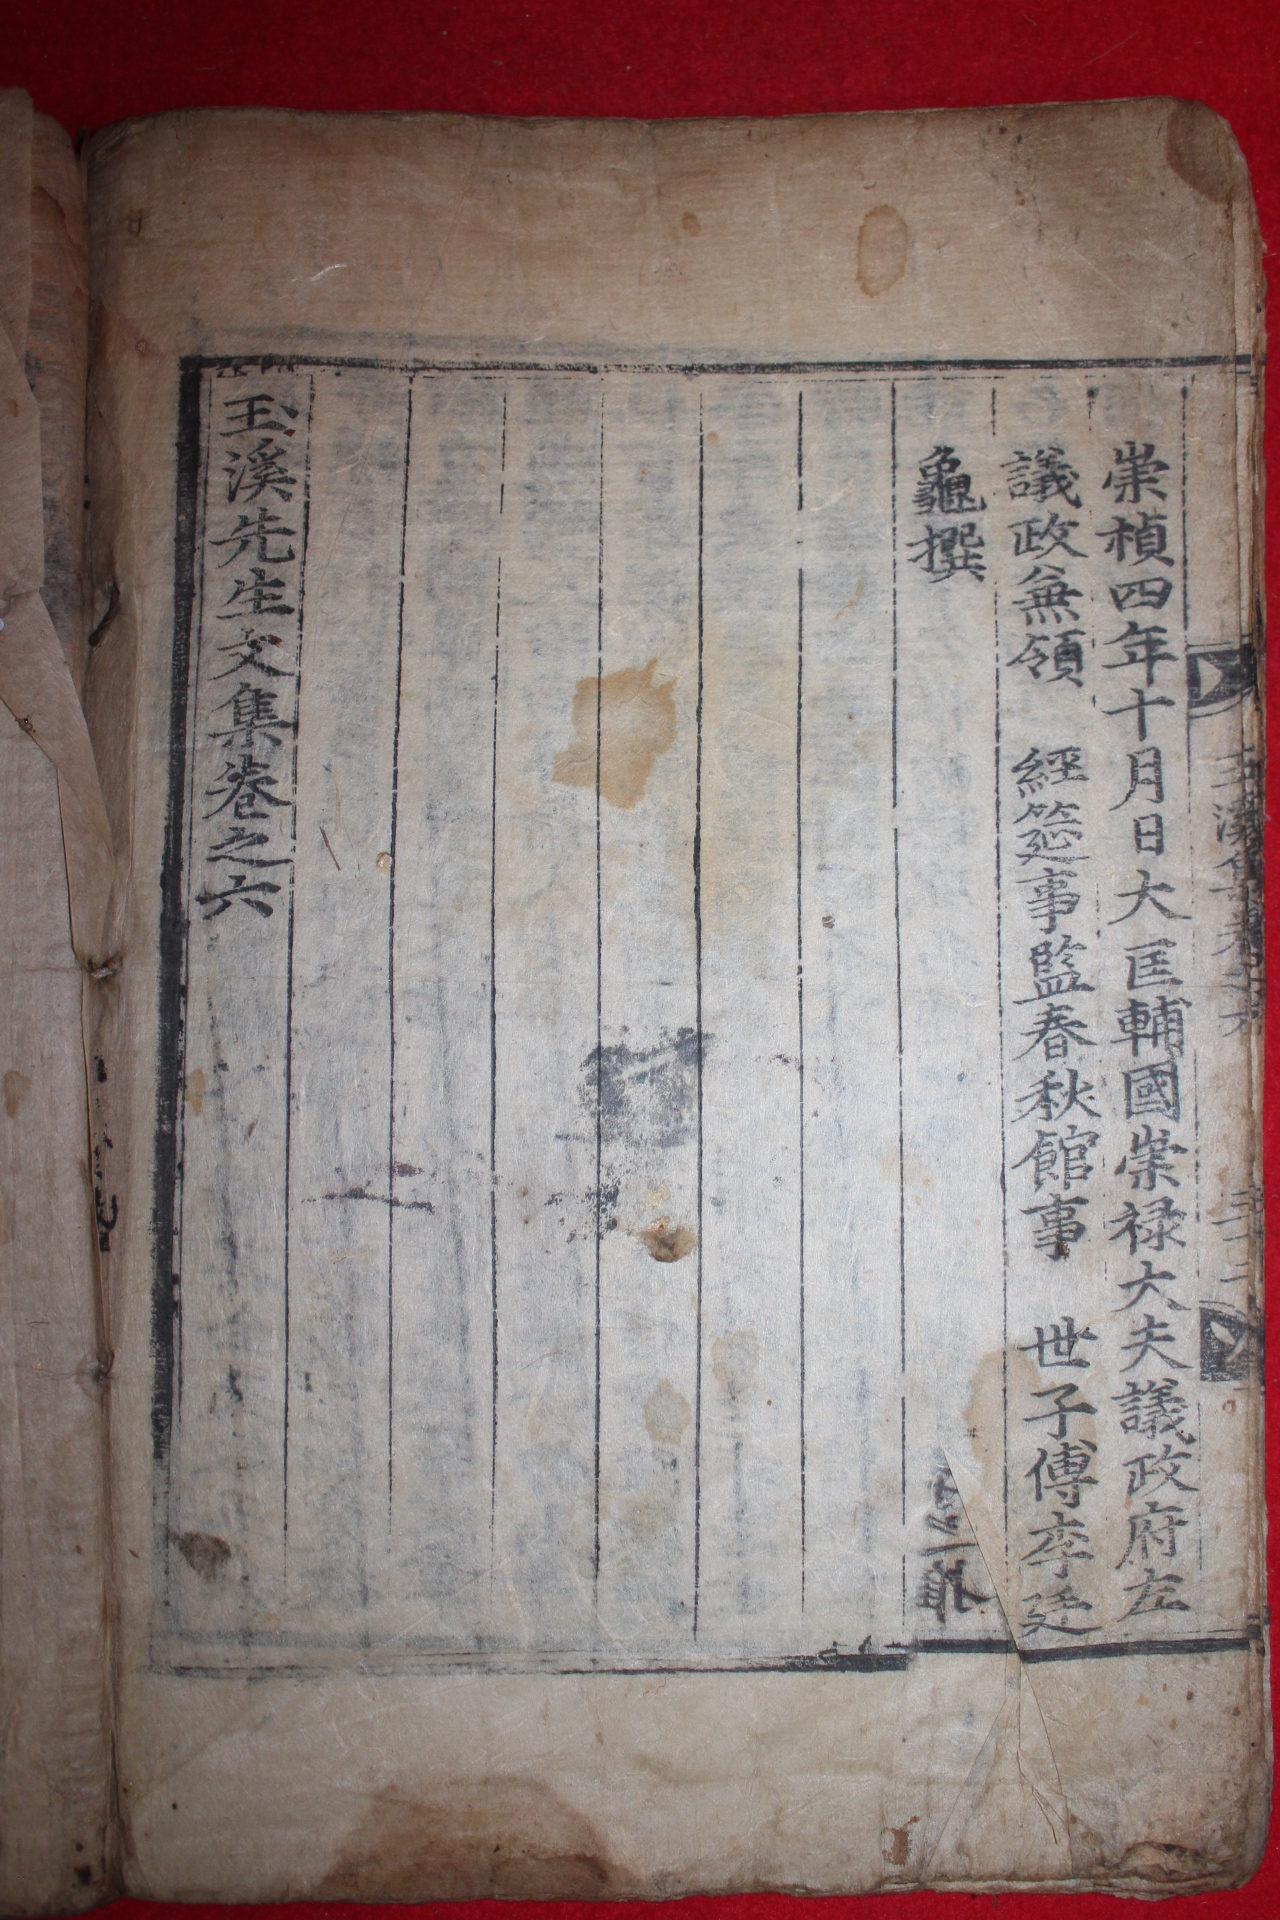 崇禎四年十月日大匡輔國崇祿大夫議政府左
議政兼領 經筵事監春秋館事 世子傅李廷
龜撰
玉溪先生文集卷之六